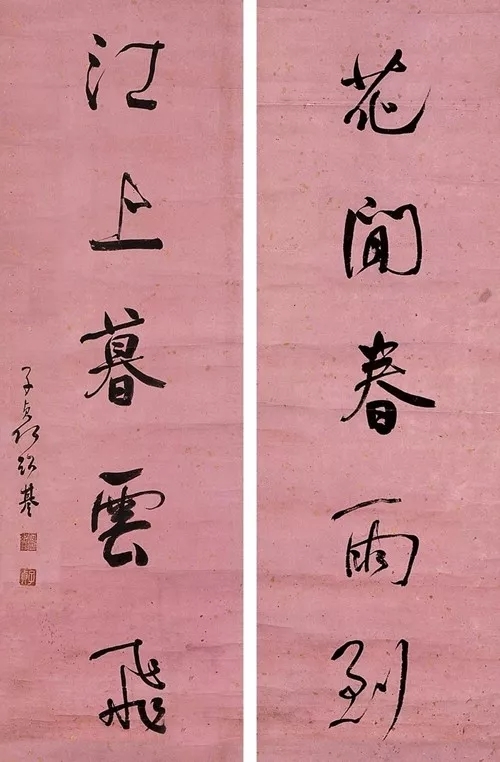 花間春雨到
江上暮雲飛
子貞何紹基